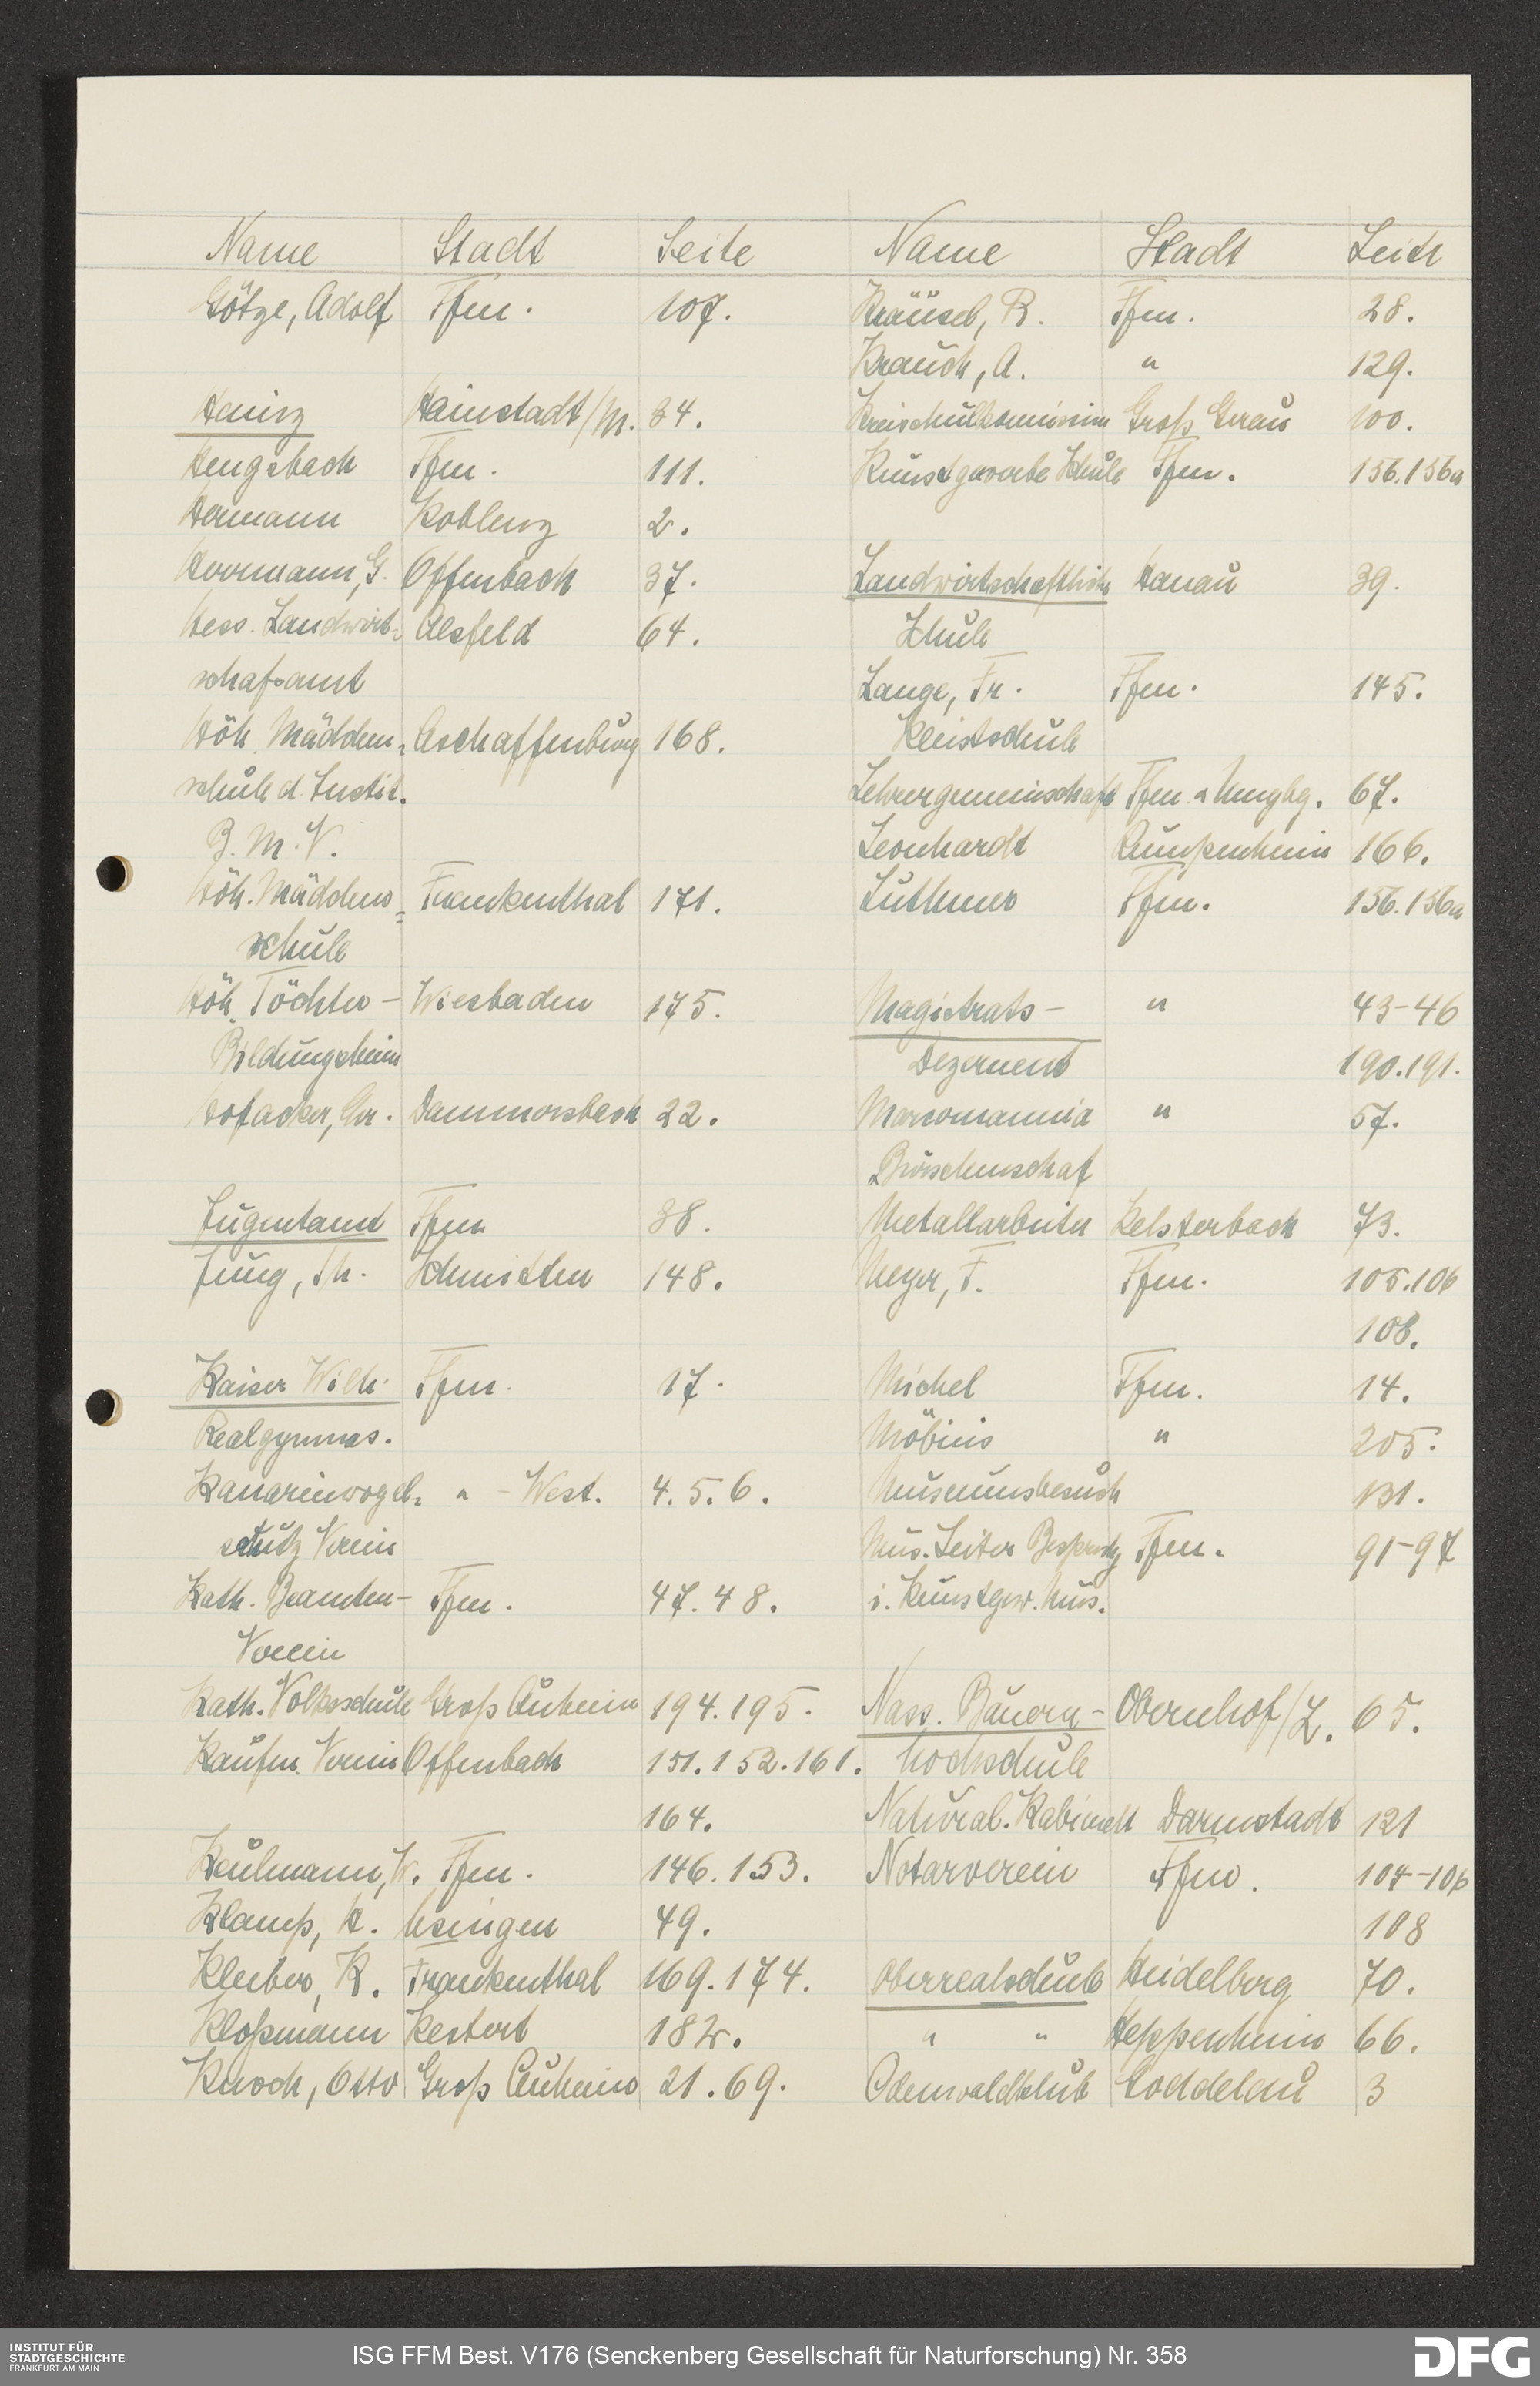 Name Stadt Seite
Götze, Adolf Ffm. 107.
Heinz Hainstadt/M. 34.
Hengsbach Ffm. 111.
Hermann Koblenz 2.
Herrmann, G. Offenbach 37.
Hess. Landwirt= Alsfeld 64.
schafsamt
Höh. Mädchen= Aschaffenburg 168.
schule d. Instit.
B. M. V.
Höh. Mädchen= Frankenthal 171.
schule
Höh. Töchter- Wiesbaden 175.
Bildungsheim
Hofacker, Chr. Dammersbach 22.
Jugentamt Ffm 38.
Jung, Th. Schmitten 148.
Kaiser Wilh. Ffm. 17.
Realgymnas.
Kanarienvogel= " - West. 4. 5. 6.
schutz Verein
Kath. Beamten- Ffm. 47. 48.
Verein
Kath. Volksschule Groß Auheim 194. 195.
Kaufm. Verein Offenbach 151. 152. 161.
164.
Keulmann, W. Ffm. 146. 153.
Klamp, K. Usingen 49.
Kleiber, K. Frankenthal 169. 174.
Kloßmann Kestert 182.
Knoch, Otto Groß Auheim 21. 69.
Name Stadt Seite
Kräusel, R. Ffm. 28.
Krauch, A. " 129.
Kreisschulkommission Groß Gerau 100.
Kunstgewerbe Schule Ffm. 156. 156a
Landwirtschaftliche Hanau 39.
Schule
Lange, Fr. Ffm. 145.
Kleistschule
Lehrergemeinschaft Ffm. u Umgbg. 67.
Leonhardt Rumpenheim 166.
Luthmer Ffm. 156. 156a
Magistrats- " 43-46
Dezernent 190. 191.
Marcomannia " 57.
Burschenschaf
Metallarbeiter Kelsterbach 73.
Meyer, F. Ffm. 105. 106
108.
Michel Ffm. 14.
Möbius " 205.
Museumsbesuch 131.
Mus. Leiter Besprechg Ffm. 91-97
i. Kunstgew. Mus.
Nass. Bauern- Obernhof/L. 65.
hochschule
Natural. Kabinett Darmstadt 121
Notarverein Ffm. 104-106
108
Oberrealschule Heidelberg 70.
" " Heppenheim 66.
Odenwaldklub Goddelau 3
INSTITUT FÜR
STADTGESCHICHTE
FRANKFURT AM MAIN
ISG FFM Best. V176 (Senckenberg Gesellschaft für Naturforschung) Nr. 358
DFG